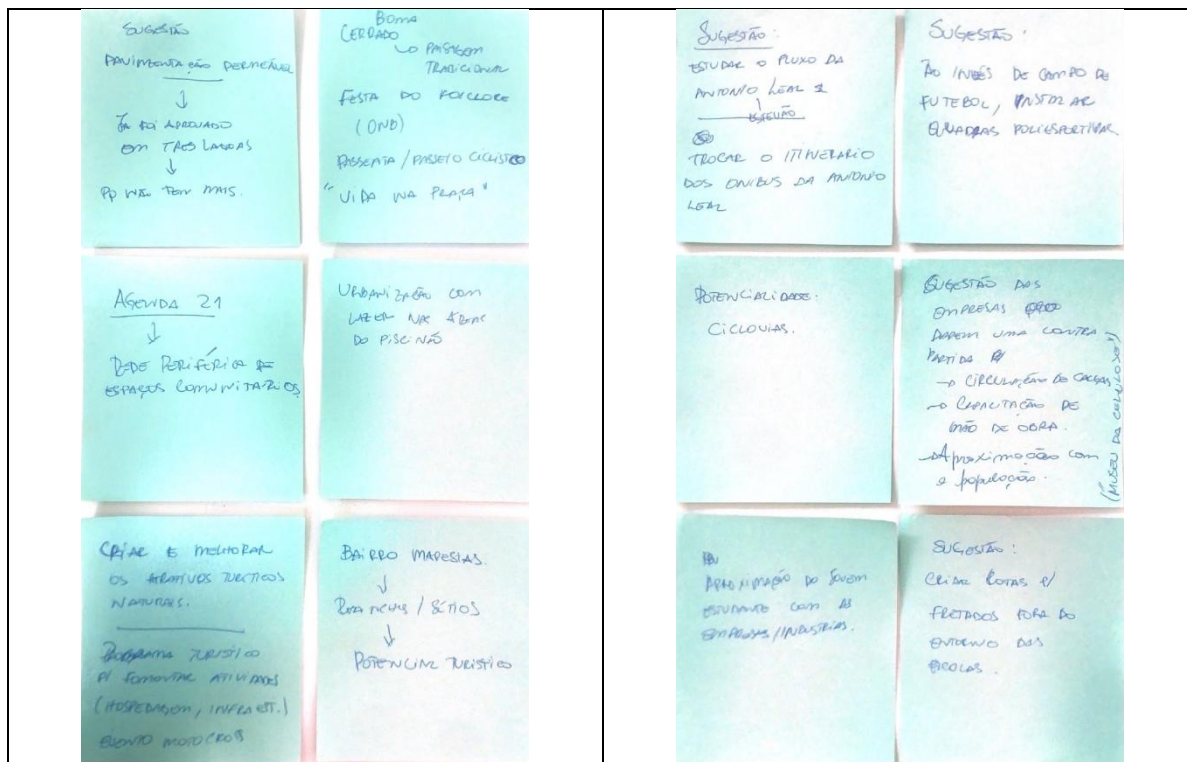 SUGESTÃO
PAVIMENTAÇÃO PERMEÁVEL
↓
JÁ FOI APROVADO
EM TRES LAGOAS
↓
PQ NÃO TEM MAIS.
CERRADO
↳ PAISAGEM
TRADICIONAL
FESTA DO FOLCLORE
(ONG)
PASSEATA / PASSEIO CICLISTICO
"VIDA NA PRAÇA"
AGENDA 21
↓
REDE PERIFÉRICA DE
ESPAÇOS COMUNITARIOS
URBANIZAÇÃO COM
LAZER NAS ÁREAS
DO PISCINÃO
CRIAR E MELHORAR
OS ATRATIVOS TURISTICOS
NATURAIS.
PROGRAMA TURISTICO
P/ FOMENTAR ATIVIDADES
(HOSPEDAGEM, INFRAEST.)
EVENTO MOTOCROSS
BAIRRO MAPESIAS.
↓
/ SÍTIOS
↓
POTENCIAL TURISTICO
SUGESTÃO:
ESTUDAR O FLUXO DA
ANTONIO LEAL
TROCAR O ITINERARIO
DOS ONIBUS DA ANTONIO
LEAL
SUGESTÃO:
AO INVÉS DE CAMPO DE
FUTEBOL, INSTALAR
QUADRAS POLIESPORTIVAS.
POTENCIALIDADE:
CICLOVIAS.
SUGESTÃO DAS
EMPRESAS
DAREM UMA CONTRA
PARTIDA P/
→ CIRCULAÇÃO DE CARGAS
→ CAPACITAÇÃO DE
MÃO DE OBRA.
→ Aproximação com
a população.
(MUSEU DA CELULOSE)
APROXIMAÇÃO DO JOVEM
ESTUDANTE COM AS
EMPRESAS/INDUSTRIAS.
SUGESTÃO:
CRIAR ROTAS P/
FRETADOS FORA DO
ENTORNO DAS
ESCOLAS.